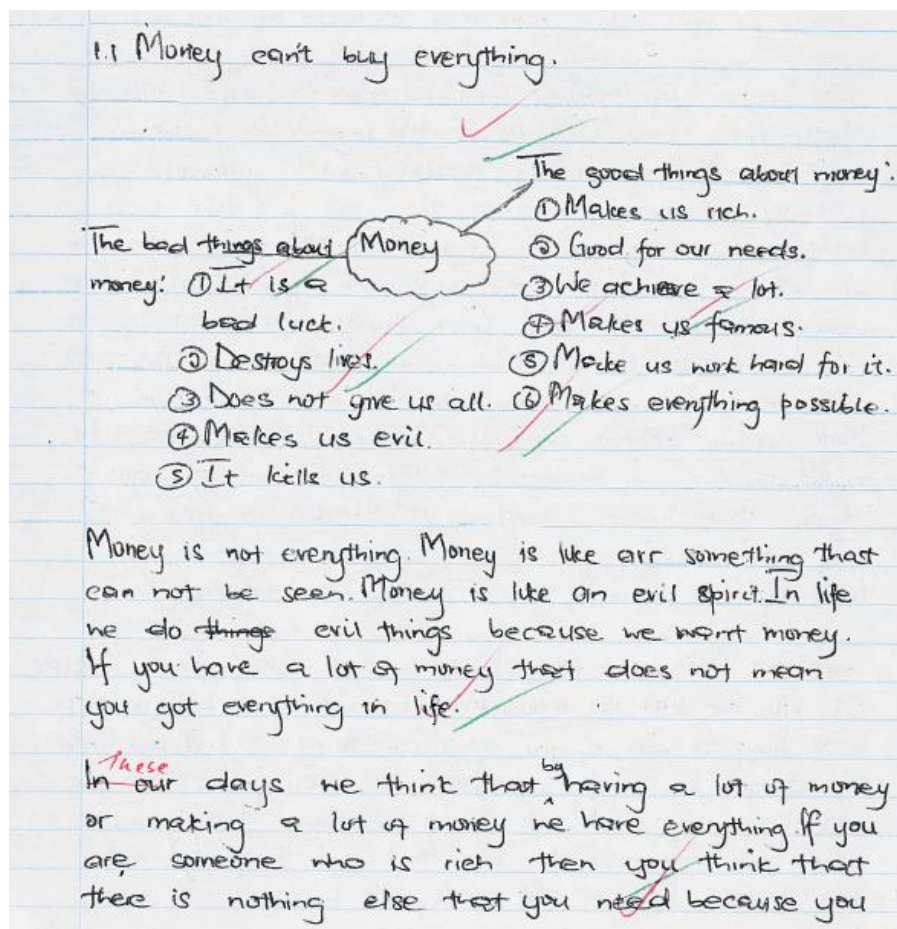 1.1 Money can't buy everything.
The good things about money:
① Makes us rich.
② Good for our needs.
③ We achieve a lot.
④ Makes us famous.
⑤ Make us work hard for it.
⑥ Makes everything possible.
Money
The bad things about
money: ① It is a
bad luck.
② Destroys lives.
③ Does not give us all.
④ Makes us evil.
⑤ It kills us.
Money is not everything. Money is like something that
can not be seen. Money is like an evil spirit. In life
we do things evil things because we want money.
If you have a lot of money that does not mean
you got everything in life.
These
In our days we think that by having a lot of money
or making a lot of money we have everything. If you
are, someone who is rich then you think that
there is nothing else that you need because you